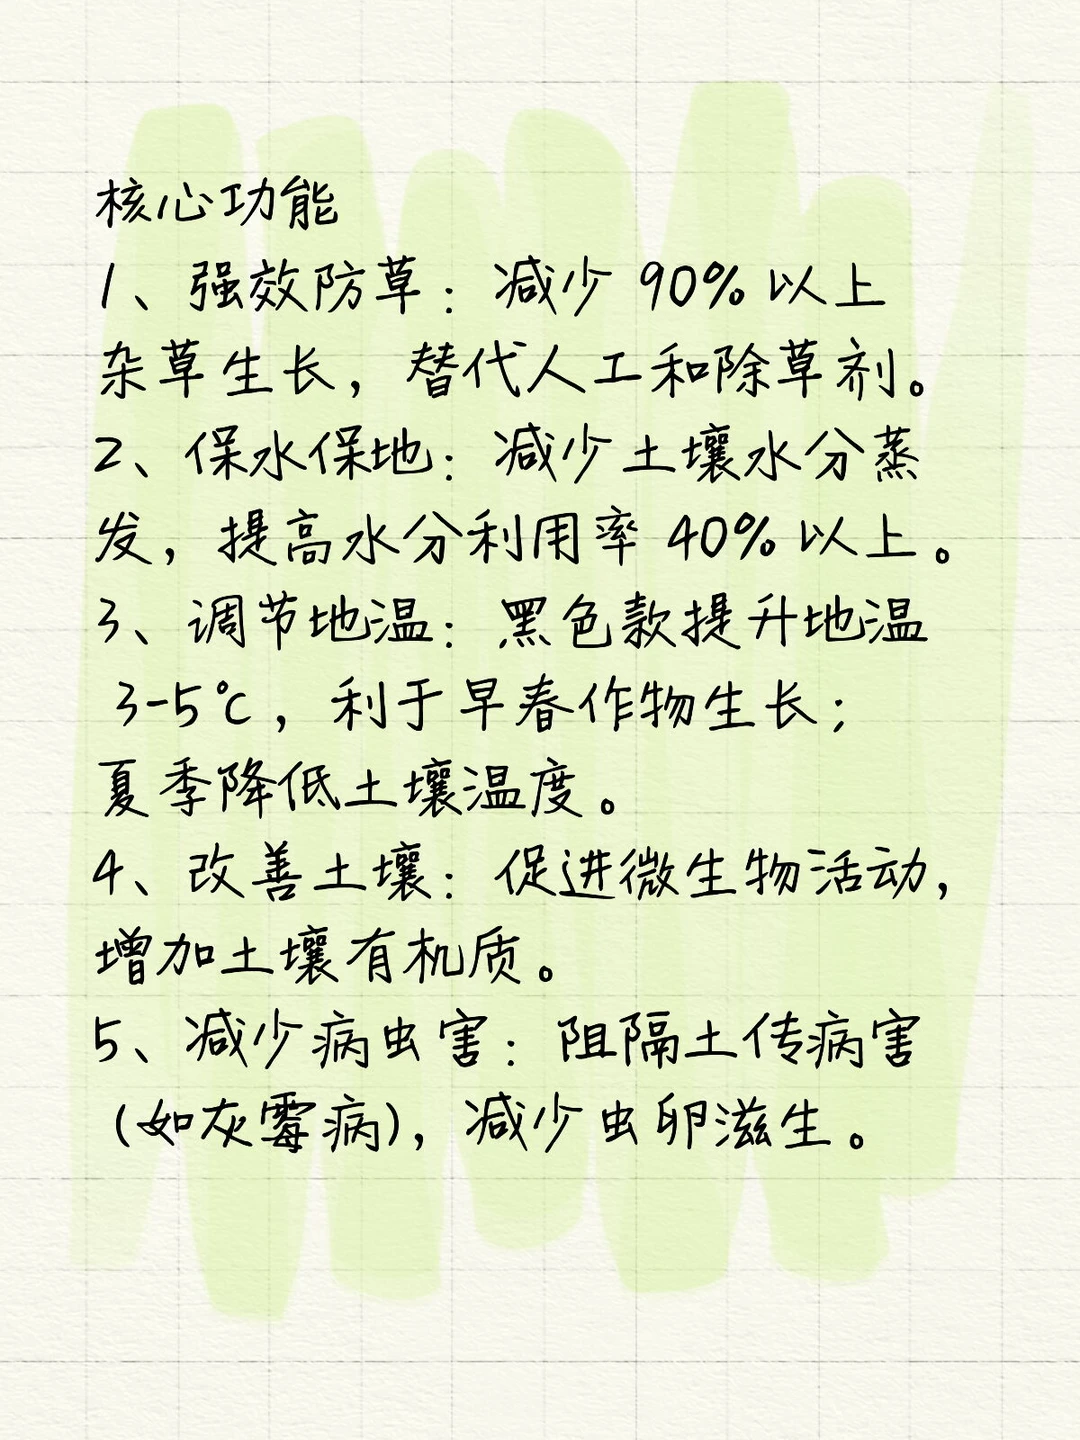 核心功能
1、强效防草：减少 90% 以上
杂草生长，替代人工和除草剂。
2、保水保地：减少土壤水分蒸
发，提高水分利用率 40% 以上。
3、调节地温：黑色款提升地温
3-5℃，利于早春作物生长；
夏季降低土壤温度。
4、改善土壤：促进微生物活动，
增加土壤有机质。
5、减少病虫害：阻隔土传病害
（如灰霉病），减少虫卵滋生。